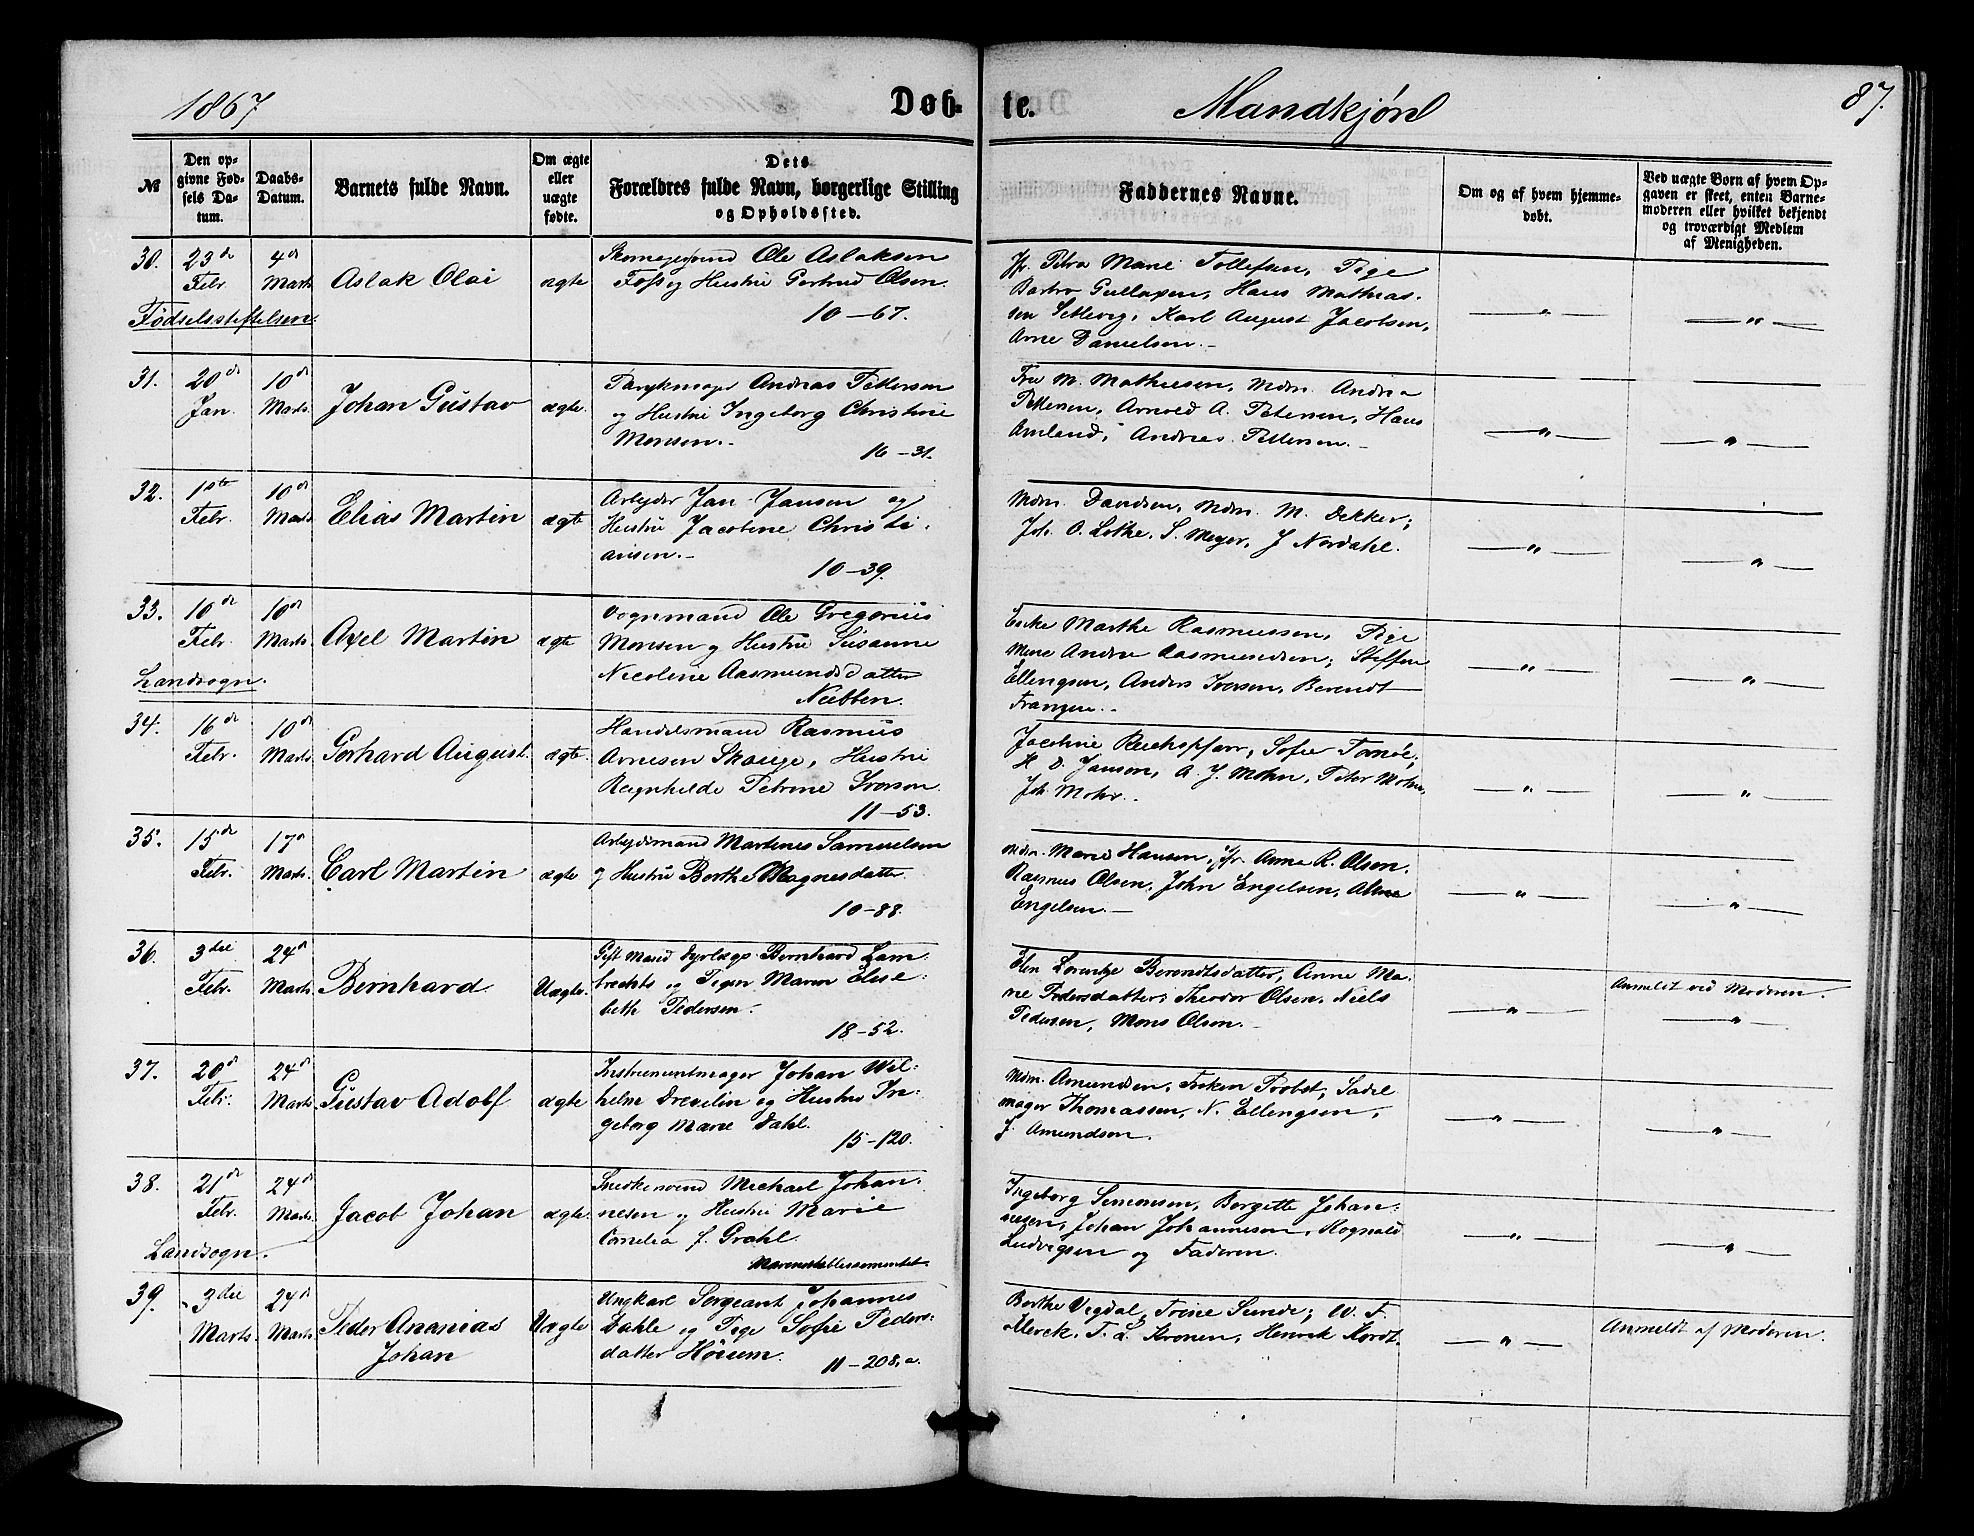 1867
Døb-
te.
Mandkjøn
87.
№
Den op-
givne Fød-
sels Da-
tum.
Daabs-
Datum.
Barnets fulde Navn.
Om ægte
eller
uægte
fødte.
Dets
Forældres fulde Navn, borgerlige Stilling
og Opholdssted.
Faddernes Navne.
Om og af hvem hjemme-
døbt.
Ved uægte Børn af hvem Op-
gaven er skeet, enten Barne-
moderen eller hvilket bekjendt
og troværdigt Medlem
af Menigheden.
30. 23de Febr. 4de Marts Aslak Olai ægte
Skomagersvend Ole Aslaksen
Foss og Hustru Gertrud Olsen.
10-67.
Fødselsstiftelsen.
Jfr. Petra Marie Tollefsen, Pige
Gullaksen, Hans Mathias-
sen, Karl August Jacobsen,
Arne Danielsen.-
31. 20de Jan. 10de Marts. Johan Gustav ægte.
Andreas Pettersen
og Hustru Ingeborg Christine
Monsen.-
16-31.
Fru M. Mathiesen, Mdm. Andrea
Pettersen, Arnold A. Petersen, Hans
Amland, Andreas Pettersen.-
32. 1ste Febr. 10de Marts Elias Martin ægte
Arbejder Jan Jansen og
Hustru Jacobine Christi-
ansen.-
10-39.
Mdm. Davidsen, Mdm. M. Dekker;
Joh. O. Lothe, S. Meyer, J Nordahl.
33. 10de Febr. 10de Marts. Axel Martin ægte
Vognmand Ole Gregorius
Monsen og Hustru Susanne
Nicoline Aasmundsdatter
Nubben.
Landsogn.
Enke Marthe Rasmussen, Pige
Andrea Aasmundsen; Steffen
Ellingsen, Anders Iversen, Berendt
Franzen.-
34. 16de Febr. 10de Marts Gerhard August. ægte.
Handelsmand Rasmus
Arnesen Skauge, Hustru
Ragnhilde Petrine Iversen.
11-53.
Jacobine Reichspfarr, Sofie Tornøe;
H. D. Jansen, A. J. Mohn, Peter Mohn,
Joh. Mohr.-
35. 15de Febr. 17de Marts. Carl Martin ægte
Arbejdsmand Martinus Samuelsen
og Hustru Berthe Magnesdatter.
10-88.
Mdm. Marie Hansen, Jfr. Anna R. Olsen.
Rasmus Olsen, John Engelsen, 
Engelsen.-
36. 3die Febr. 24de Marts. Bernhard. Uægte.
Gift Mand Dyrlæge Bernhard Lam-
brechts og Pigen Maren Elise-
beth Pedersen.-
18-52.
Elen Lorentze Berendtsdatter, Anne Ma-
rie Pedersdatter; Theodor Olsen, Niels
Pedersen, Mons Olsen.-
Anmeldt ved Moderen.
37. 20de Febr. 24de Marts Gustav Adolf ægte
Instrumentmager Johan Wil-
helm Drexelin og Hustru In-
geborg Marie Dahl.
15-120.
Mdm. Amundsen, Frøken Probst; Sadel
mager Thomassen, N. Ellingsen,
J. Amundsen.
38. 21de Febr. 24de Marts. Jacob Johan ægte.
Snedkersvend Michael Johan-
nesen og Hustru Marie
Cornelia f. Grahl.
Marineetablissementet
Landsogn.
Ingeborg Simonsen, Bergitte Johan-
nesen, Johan Johannesen, Rognald
Ludvigsen og Faderen.
39. 3die Marts. 24de Marts Peder Ananias
Johan
Uægte
Ungkarl Sergeant Johannes
Dahle og Pige Sofie Peders-
datter Høisem.
11-208,a.
Berthe Vigdal, Trine Sunde; W. F.
Merck, T. L. Kronen, Henrik Kordt.
Anmeldt af Moderen.